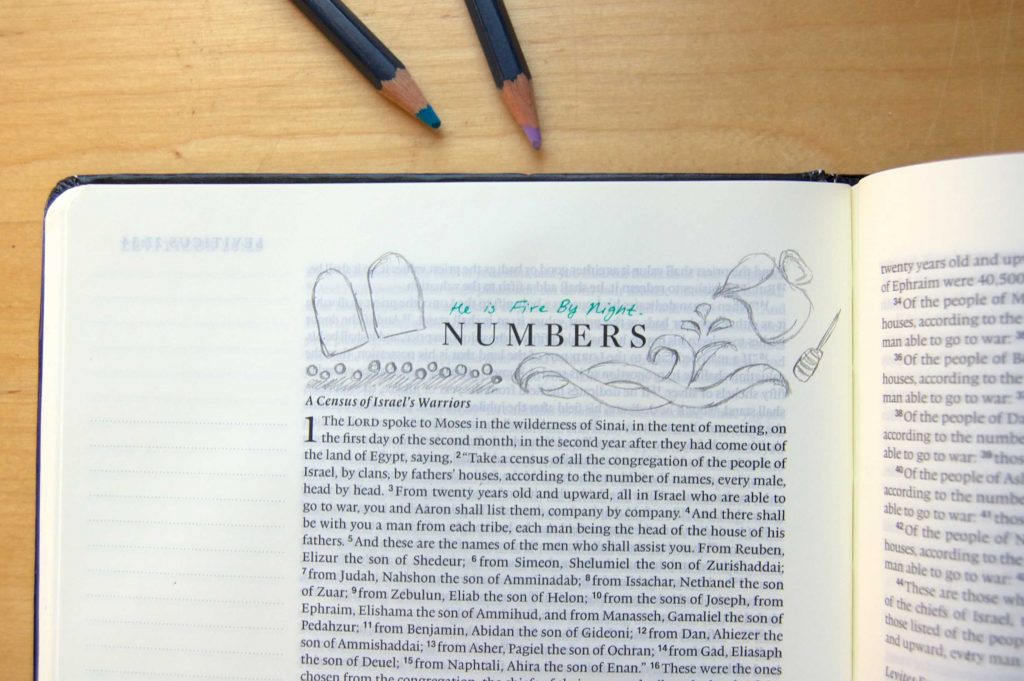 He is Fire By Night.
NUMBERS
A Census of Israel's Warriors
1 The LORD spoke to Moses in the wilderness of Sinai, in the tent of meeting, on
the first day of the second month, in the second year after they had come out of
the land of Egypt, saying, 2 “Take a census of all the congregation of the people of
Israel, by clans, by fathers' houses, according to the number of names, every male,
head by head. 3 From twenty years old and upward, all in Israel who are able to
go to war, you and Aaron shall list them, company by company. 4 And there shall
be with you a man from each tribe, each man being the head of the house of his
fathers. 5 And these are the names of the men who shall assist you. From Reuben,
Elizur the son of Shedeur; 6 from Simeon, Shelumiel the son of Zurishaddai;
7 from Judah, Nahshon the son of Amminadab; 8 from Issachar, Nethanel the son
of Zuar; 9 from Zebulun, Eliab the son of Helon; 10 from the sons of Joseph, from
Ephraim, Elishama the son of Ammihud, and from Manasseh, Gamaliel the son of
Pedahzur; 11 from Benjamin, Abidan the son of Gideoni; 12 from Dan, Ahiezer the
son of Ammishaddai; 13 from Asher, Pagiel the son of Ochran; 14 from Gad, Eliasaph
the son of Deuel; 15 from Naphtali, Ahira the son of Enan.” 16 These were the ones
chosen from the congregation, the chiefs of their
twenty years old and
of Ephraim were 40,500
34 Of the people of M
houses, according to the
man able to go to war:
36 Of the people of Be
houses, according to the
man able to go to war:
38 Of the people of Da
according to the numbe
able to go to war: 39 thos
40 Of the people of Ash
according to the numbe
able to go to war: 41 thos
42 Of the people of N
houses, according to the
man able to go to war:
44 These are those wh
of the chiefs of Israel,
those listed of the peop
and upward, every man
Levites